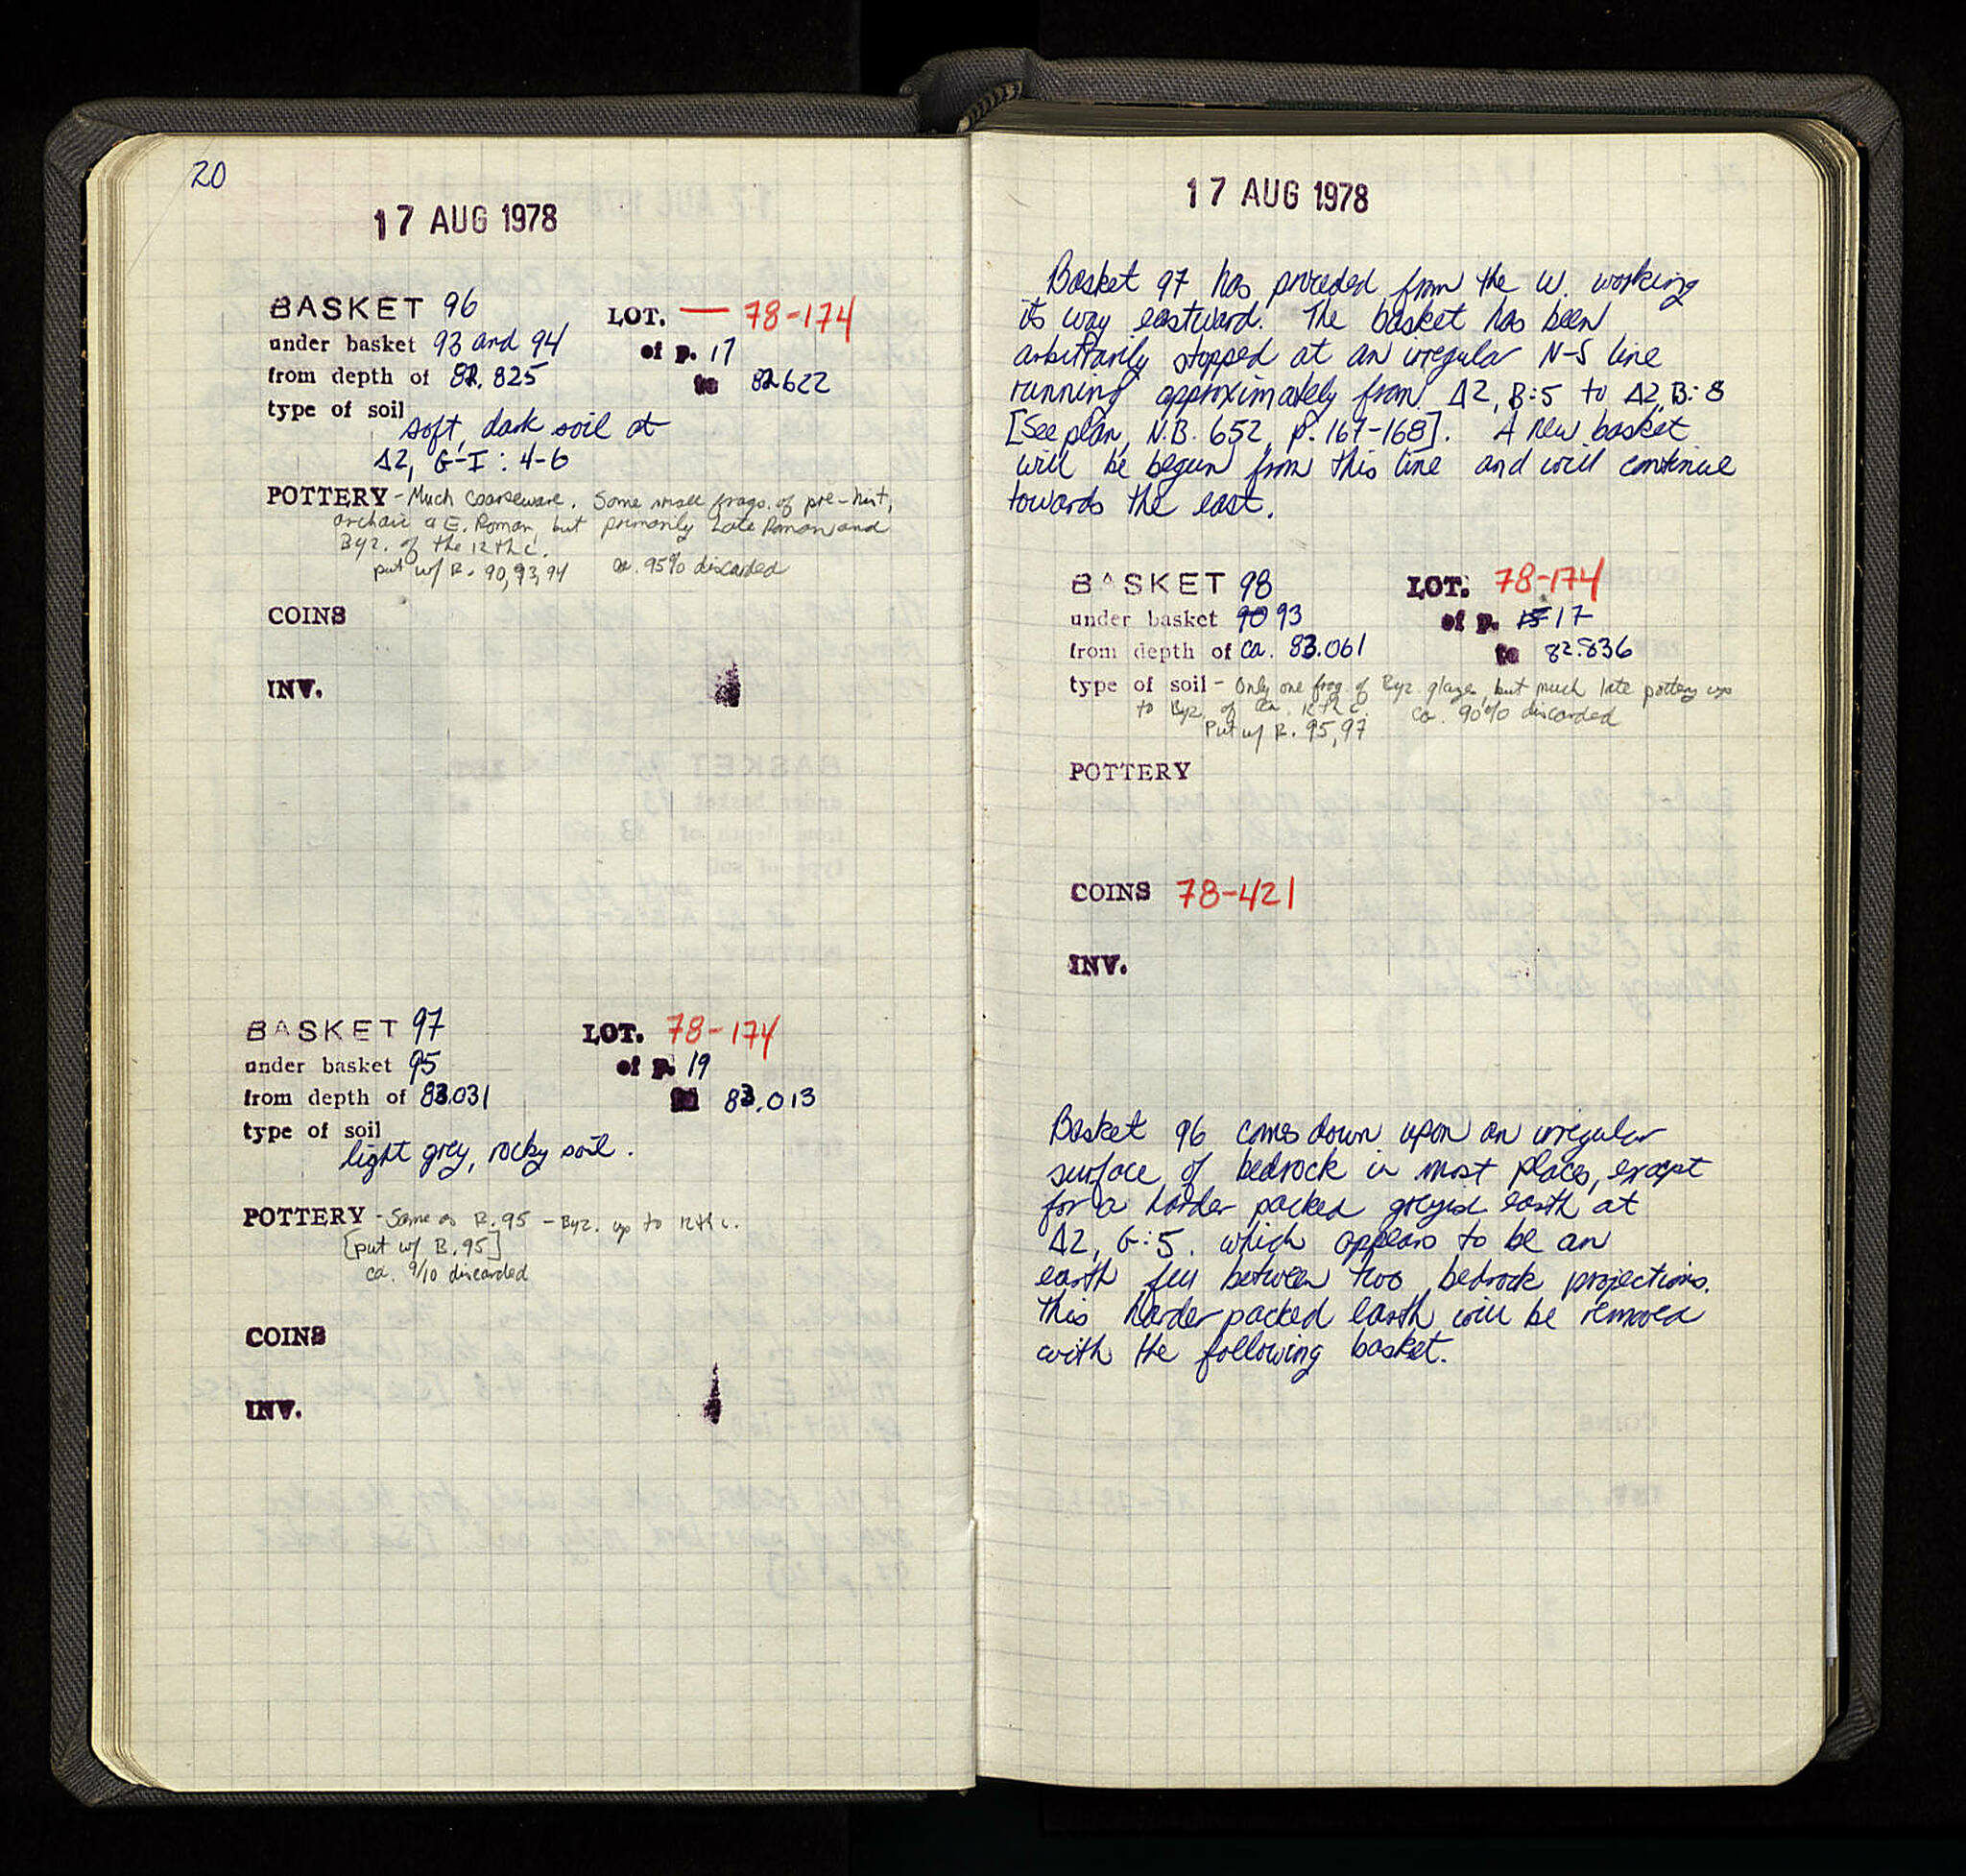 20
17 AUG 1978
BASKET 96 LOT. — 78-174
under basket 93 and 94 of p. 17
from depth of 82.825 to 82.622
type of soil
soft, dark soil at
Δ2, G-I : 4-6
POTTERY - Much coarseware. Some small frags. of pre-hist,
archaic & E. Roman, but primarily Late Roman and
Byz. of the 12th c.
put w/ B. 90, 93, 94 ca. 95% discarded
COINS
INV.
BASKET 97 LOT. 78-174
under basket 95 of p. 19
from depth of 83.031 to 83.013
type of soil
light grey, rocky soil.
POTTERY - Same as B. 95 - Byz. up to 12th c.
[put w/ B. 95]
ca. 9/10 discarded
COINS
INV.
17 AUG 1978
Basket 97 has proceded from the W. working
its way eastward. The basket has been
arbitrarily stopped at an irregular N-S line
running approximately from Δ2, B:5 to Δ2, B:8
[See plan, N.B. 652, p. 167-168]. A new basket
will be begun from this line and will continue
towards the east.
BASKET 98 LOT. 78-174
under basket 90 93 of p. 15 17
from depth of ca. 83.061 to 82.836
type of soil - Only one frag. of Byz. glaze, but much late pottery up
to Byz. of ca. 12th c. ca. 90% discarded
Put w/ B. 95, 97
POTTERY
COINS 78-421
INV.
Basket 96 comes down upon an irregular
surface of bedrock in most places, except
for a harder packed greyish earth at
Δ2, G:5. which appears to be an
earth fill between two bedrock projections.
This harder packed earth will be removed
with the following basket.